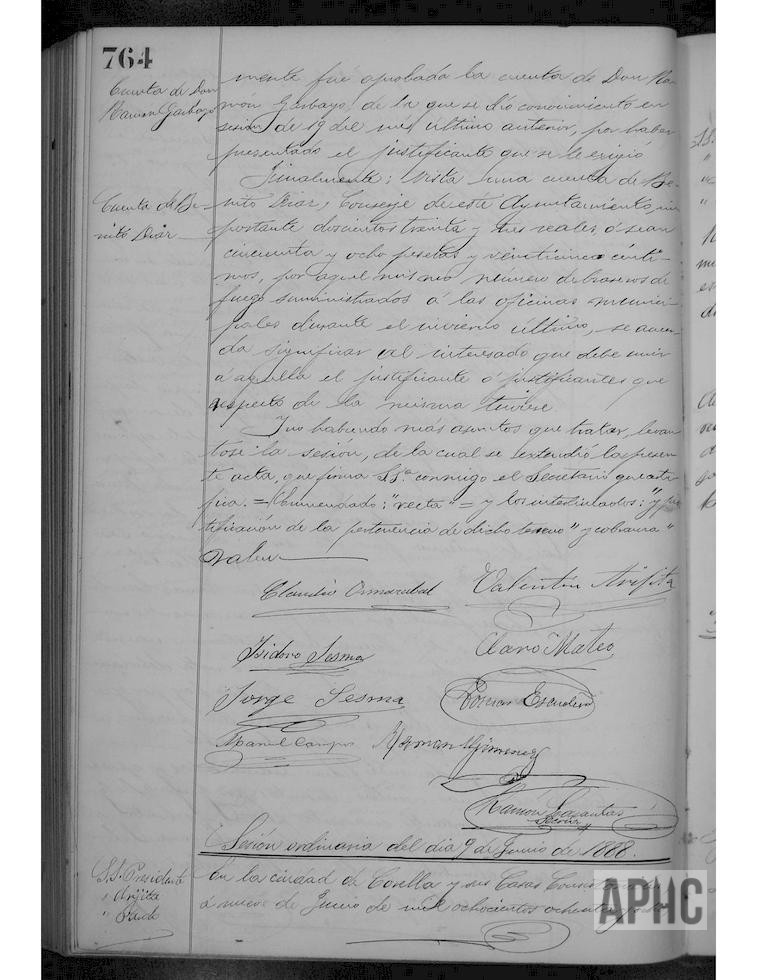 764
Cuenta de Don
Ramon Garbayo
mente fué aprobada la cuenta de Don Ra-
món Garbayo, de la que se dió conocimiento en
sesión de 19 del mes último anterior, por haber
presentado el justificante que se le exigió
Cuenta de Be-
nito Diaz
Finalmente; vista una cuenta de Be-
nito Diaz, Conserje de éste Ayuntamiento, im-
portante doscientos treinta y tres reales ó sean
cincuenta y ocho pesetas y veinticinco cénti-
mos, por aquel mismo número de braseros de
fuego suministrados á las oficinas munici-
pales durante el invierno último, se acuer-
da significar al interesado que debe unir
á aquella el justificante ó justificantes que
respecto de la misma tuviere.
Y no habiendo más asuntos que tratar, levan-
tose la sesión, de la cual se extendió la presen-
te acta, que firma SSª conmigo el Secretario que certi-
fica. = Enmendado: "recta" = y los interlineados: "y jus-
tificación de la pertenencia de dicho terreno" y cobranza"
valen
Claudio Ormazabal
Valentín Arifita
Isidoro Sesma
Claro Mateo
Jorge Sesma
Roman Escudero
Manuel Campos
Roman Gimenez
Ramón
Secrio
Sesión ordinaria del dia 9 de Junio de 1888.
S.S. Presidente
" Arifita
"
En la ciudad de Corella y sus Casas Consistoriales
á nueve de Junio de mil ochocientos ochenta y ocho
APHC